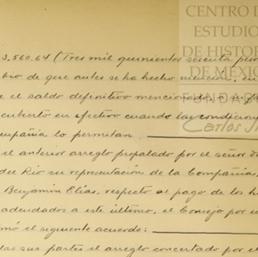 CENTRO D
ESTUDIO
DE HISTOR
DE MÉXIC
3,560.64 (Tres mil quinientos sesenta pes
bio de que antes se ha hecho mención, en
e el saldo definitivo mencionado
cubierto en efectivo cuando las condicion
mpañía lo permitan.
Carlos
el anterior arreglo propalado por el señor d
del Rio en representación de la Compañía,
Benjamin Elias, respecto al pago de los h
adeudados a este último, el Consejo por u
mó el siguiente acuerdo:
das sus partes el arreglo concertado por el